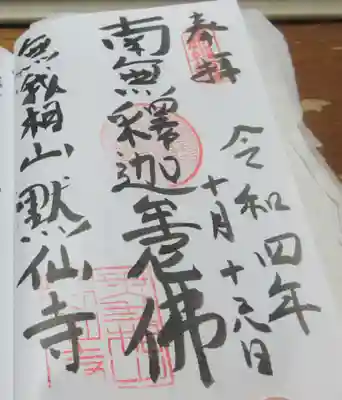 奉拝
令和四年
十月十日
南無釋迦牟尼佛
無我相山默仙寺